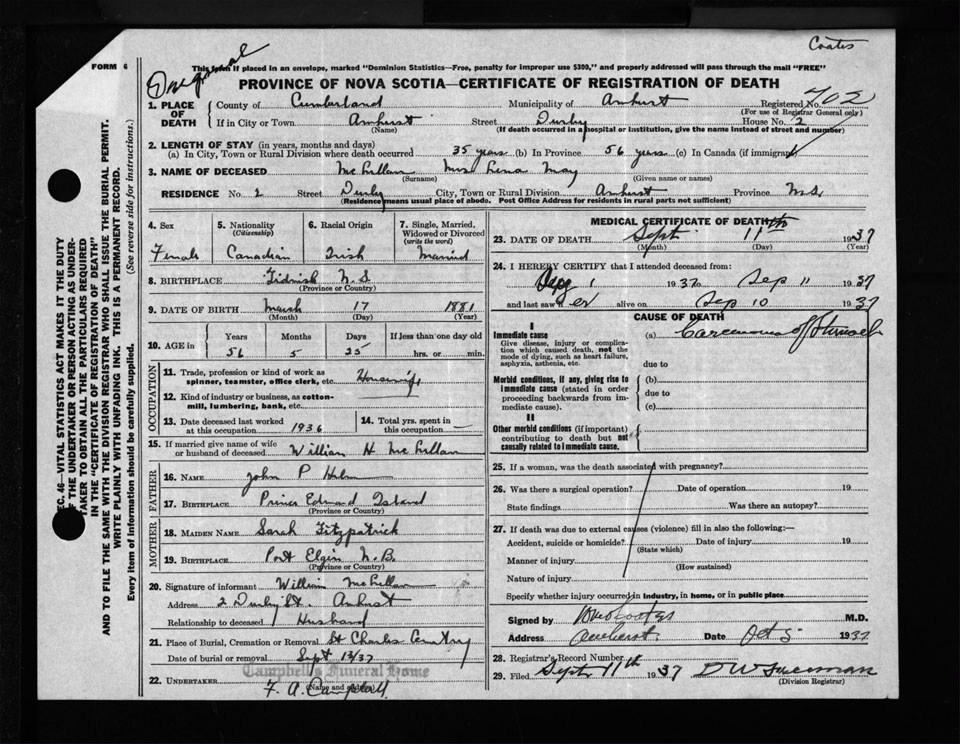 Coates
Original
FORM 6
This form if placed in an envelope, marked "Dominion Statistics—Free, penalty for improper use $300," and properly addressed will pass through the mail "FREE"
PROVINCE OF NOVA SCOTIA—CERTIFICATE OF REGISTRATION OF DEATH
1. PLACE OF DEATH County of Cumberland Municipality of Amherst Registered No. 702
(For use of Registrar General only)
If in City or Town Amherst Street House No. 2
(Name) (If death occurred in a hospital or institution, give the name instead of street and number)
2. LENGTH OF STAY (in years, months and days)
(a) In City, Town or Rural Division where death occurred 35 years (b) In Province 56 years (c) In Canada (if immigrant)
3. NAME OF DECEASED McLellan Mrs Lena May
(Surname) (Given name or names)
RESIDENCE No. 2 Street City, Town or Rural Division Amherst Province N.S.
(Residence means usual place of abode. Post Office Address for residents in rural parts not sufficient)
4. Sex 5. Nationality (Citizenship) 6. Racial Origin 7. Single, Married, Widowed or Divorced (write the word)
Female Canadian Irish Married
8. BIRTHPLACE Tidnish N.S
(Province or Country)
9. DATE OF BIRTH March 17 1881
(Month) (Day) (Year)
10. AGE in Years Months Days If less than one day old
56 5 25 hrs. or min.
OCCUPATION
11. Trade, profession or kind of work as spinner, teamster, office clerk, etc. Housewife
12. Kind of industry or business, as cotton-mill, lumbering, bank, etc.
13. Date deceased last worked at this occupation 1936 14. Total yrs. spent in this occupation —
15. If married give name of wife or husband of deceased William H McLellan
FATHER
16. NAME John P
17. BIRTHPLACE Prince Edward Island
(Province or Country)
MOTHER
18. MAIDEN NAME Sarah Fitzpatrick
19. BIRTHPLACE Port Elgin N.B.
(Province or Country)
20. Signature of informant William McLellan
Address 2 St. Amherst
Relationship to deceased Husband
21. Place of Burial, Cremation or Removal St Charles Cemetry
Date of burial or removal Sept 13/37
Campbell's Funeral Home
22. UNDERTAKER F. A. Campbell
(Name and address)
MEDICAL CERTIFICATE OF DEATH
23. DATE OF DEATH Sept 11th 1937
(Month) (Day) (Year)
24. I HEREBY CERTIFY that I attended deceased from:
1 1937 to Sep 11 1937
and last saw her alive on Sep 10 1937
CAUSE OF DEATH
I
Immediate cause (a) Carcinoma of
Give disease, injury or complication which caused death, not the mode of dying, such as heart failure, asphyxia, asthenia, etc.
due to
Morbid conditions, if any, giving rise to immediate cause (stated in order proceeding backwards from immediate cause).
(b)
due to
(c)
II
Other morbid conditions (if important) contributing to death but not causally related to immediate cause.
25. If a woman, was the death associated with pregnancy?
26. Was there a surgical operation? Date of operation 19
State findings Was there an autopsy?
27. If death was due to external causes (violence) fill in also the following:—
Accident, suicide or homicide? Date of injury 19
(State which)
Manner of injury
(How sustained)
Nature of injury
Specify whether injury occurred in industry, in home, or in public place
Signed by M.D.
Address Amherst Date Oct 5 1937
28. Registrar's Record Number
29. Filed Sept 11th 1937 D W Freeman
(Division Registrar)
SEC. 46—VITAL STATISTICS ACT MAKES IT THE DUTY
OF THE UNDERTAKER OR PERSON ACTING AS UNDER-
TAKER TO OBTAIN ALL THE PARTICULARS REQUIRED
IN THE "CERTIFICATE OF REGISTRATION OF DEATH"
AND TO FILE THE SAME WITH THE DIVISION REGISTRAR WHO SHALL ISSUE THE BURIAL PERMIT.
WRITE PLAINLY WITH UNFADING INK. THIS IS A PERMANENT RECORD.
Every item of information should be carefully supplied. (See reverse side for instructions.)